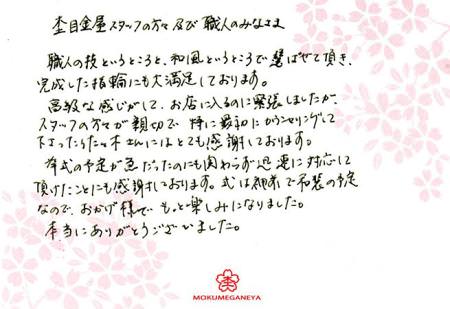 杢目金屋スタッフの方々及び職人のみなさま
職人の技というところと、和風というところで選ばせて頂き、
完成した指輪にも大満足しております。
高級な感じがして、お店に入るのに緊張しましたが、
スタッフの方々が親切で 特に最初にカウンセリングして
下さった さんにはとても感謝しております。
挙式の予定が急だったのにも関わらず迅速に対応して
頂けたことにも感謝しております。式は で和装の予定
なので、おかげ様で もっと楽しみになりました。
本当にありがとうございました。
MOKUMEGANEYA